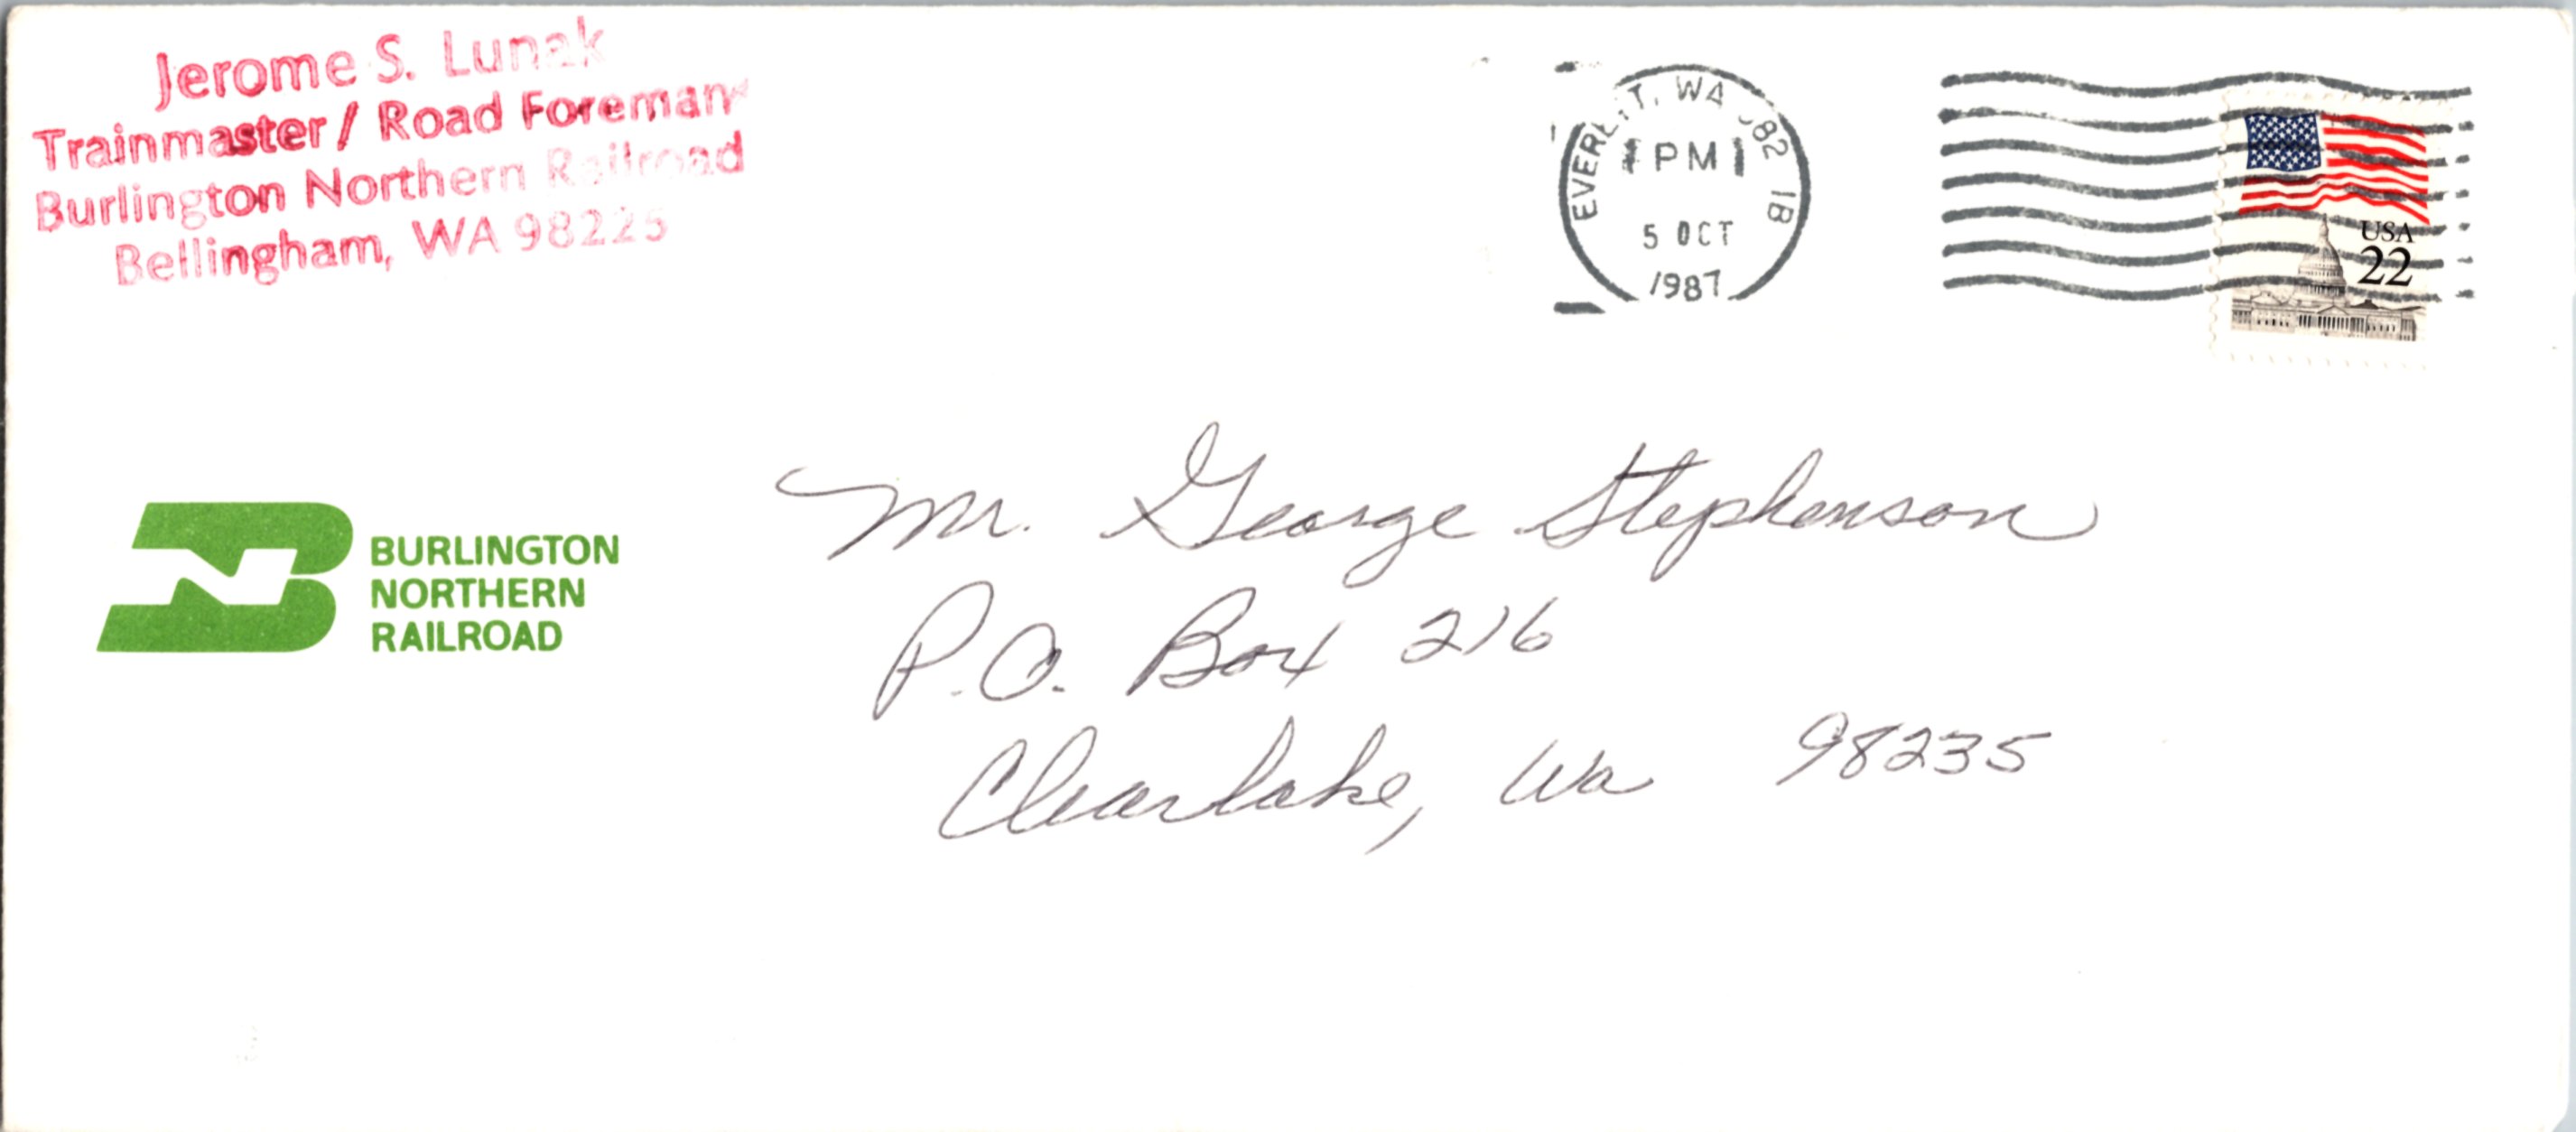 Jerome S. Lunak
Trainmaster / Road Foreman
Burlington Northern Railroad
Bellingham, WA 98225
EVERETT, WA 982 1B
PM
5 OCT
1987
USA
22
BURLINGTON
NORTHERN
RAILROAD
Mr. George Stephenson
P.O. Box 216
Clearlake, Wa 98235